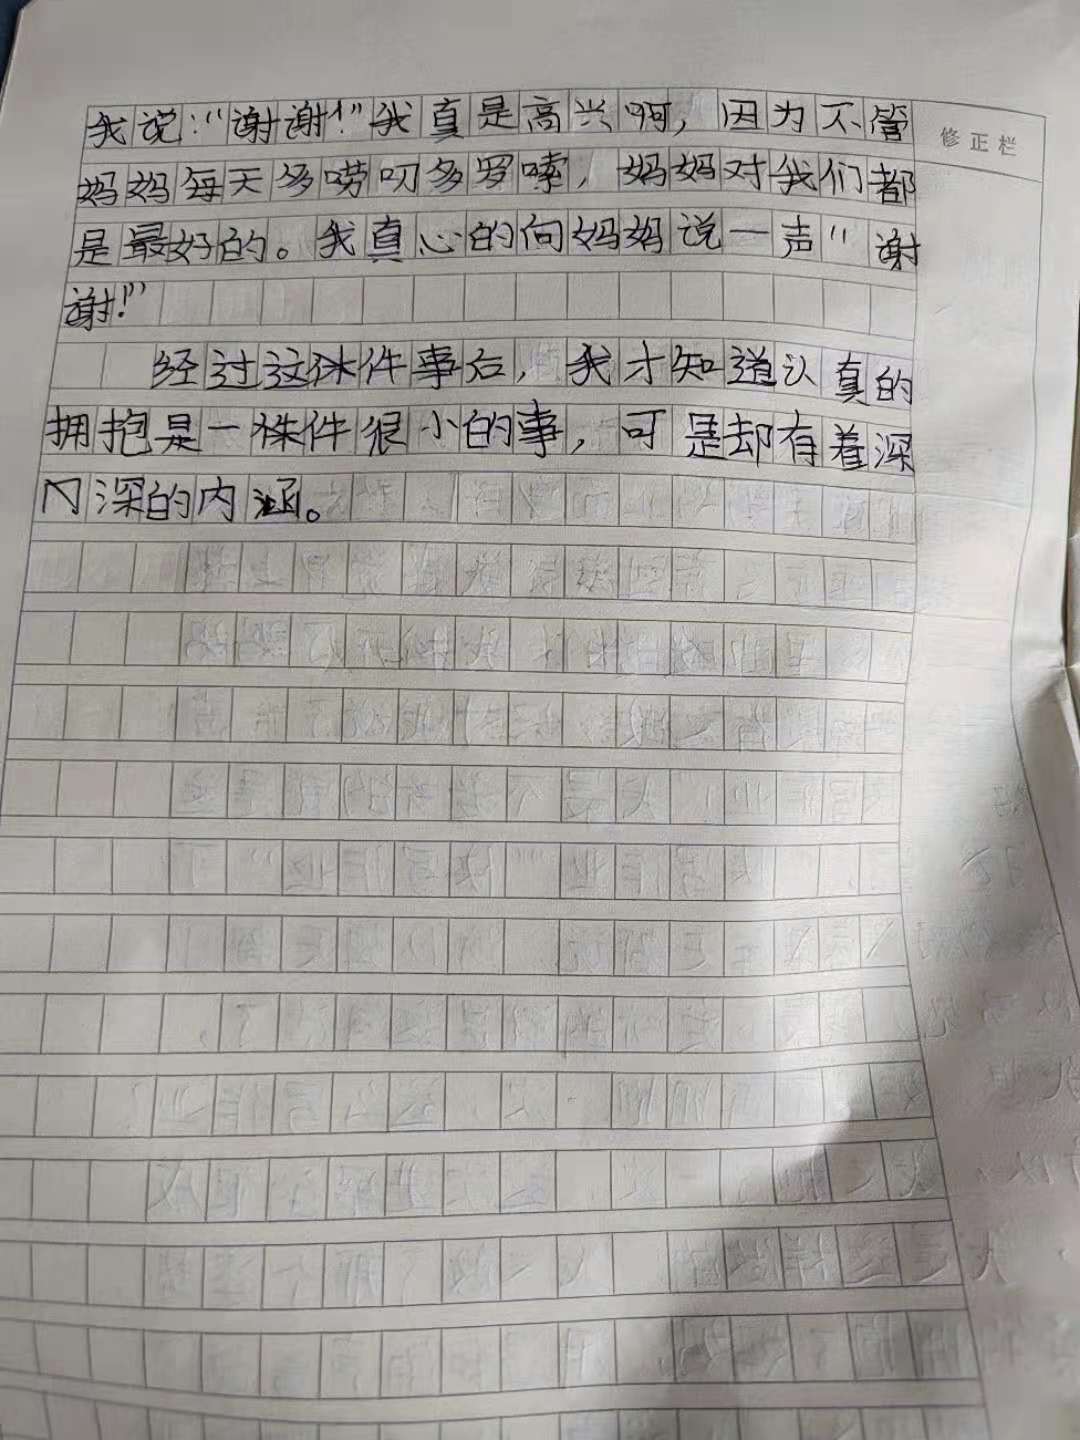 我说:“谢谢!”我真是高兴啊,因为不管
修正栏
妈妈每天多唠叨多罗嗦,妈妈对我们都
是最好的。我真心的向妈妈说一声“谢
谢!”
经过这件事后,我才知道认真的
拥抱是一件很小的事,可是却有着深
深的内涵。